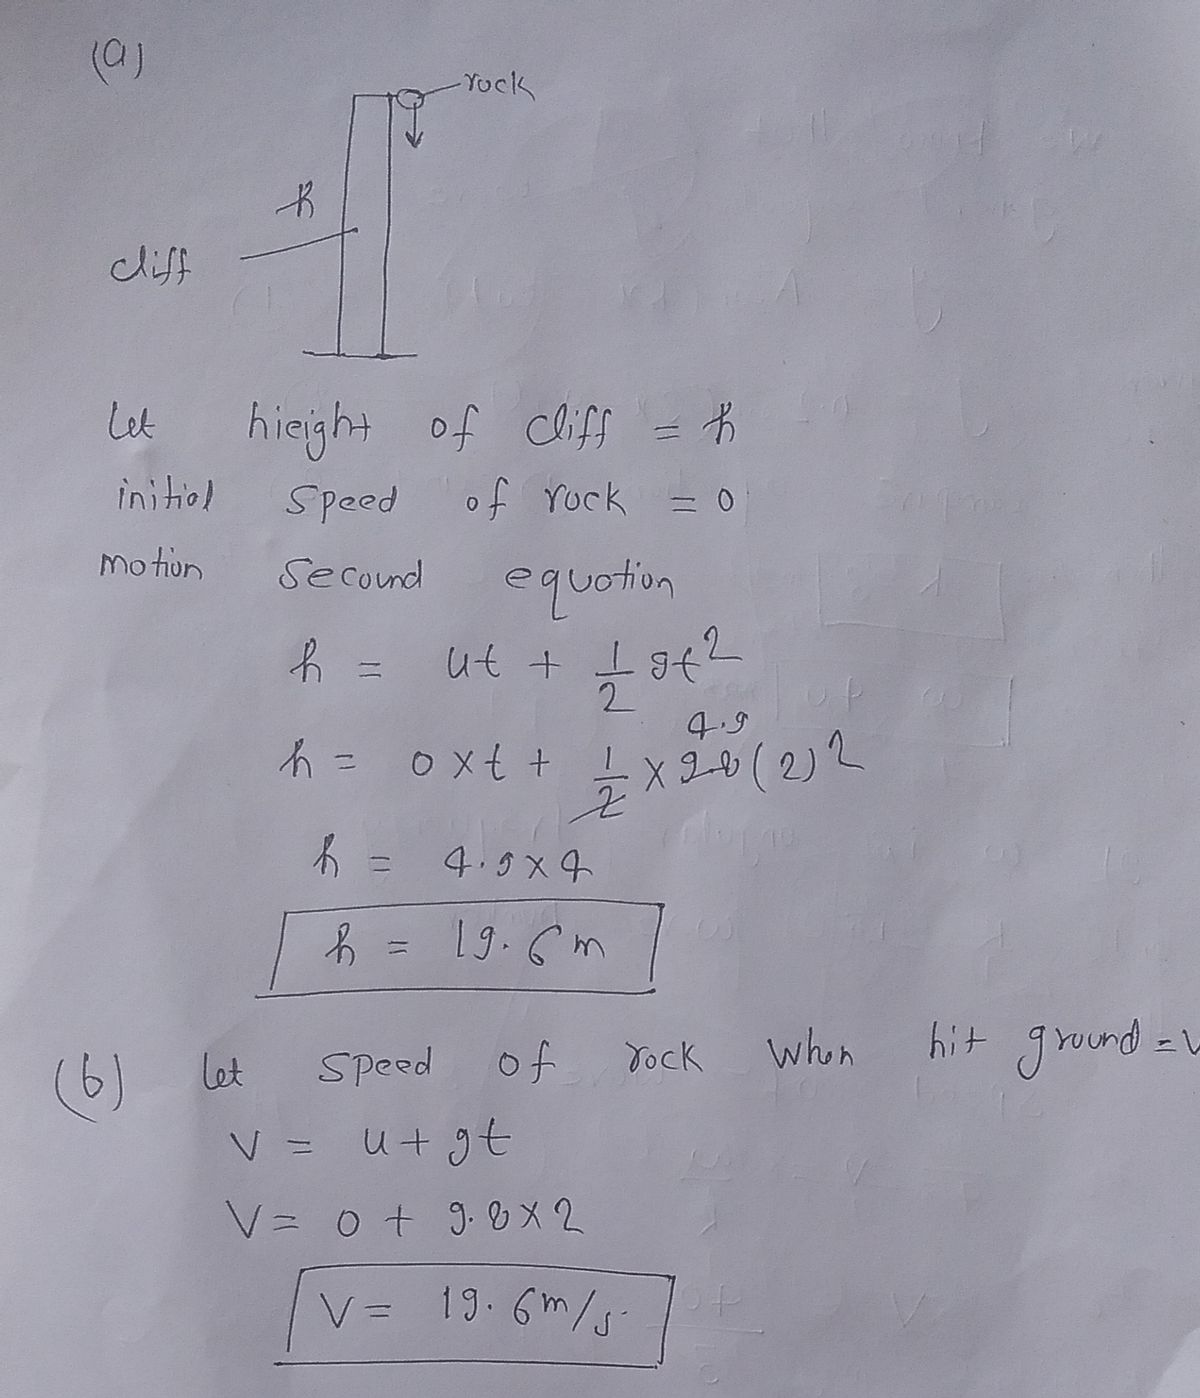 (a)
rock
h
cliff
Let hieight of cliff = h
initial speed of rock = 0
motion Second equation
h = ut + 1/2 gt²
4.9
h = 0 x t + 1/2 x 9.8 (2)²
h = 4.9 x 4
h = 19.6 m
(b) Let speed of rock when hit ground = v
V = u + gt
V = 0 + 9.8 x 2
V = 19.6 m/s